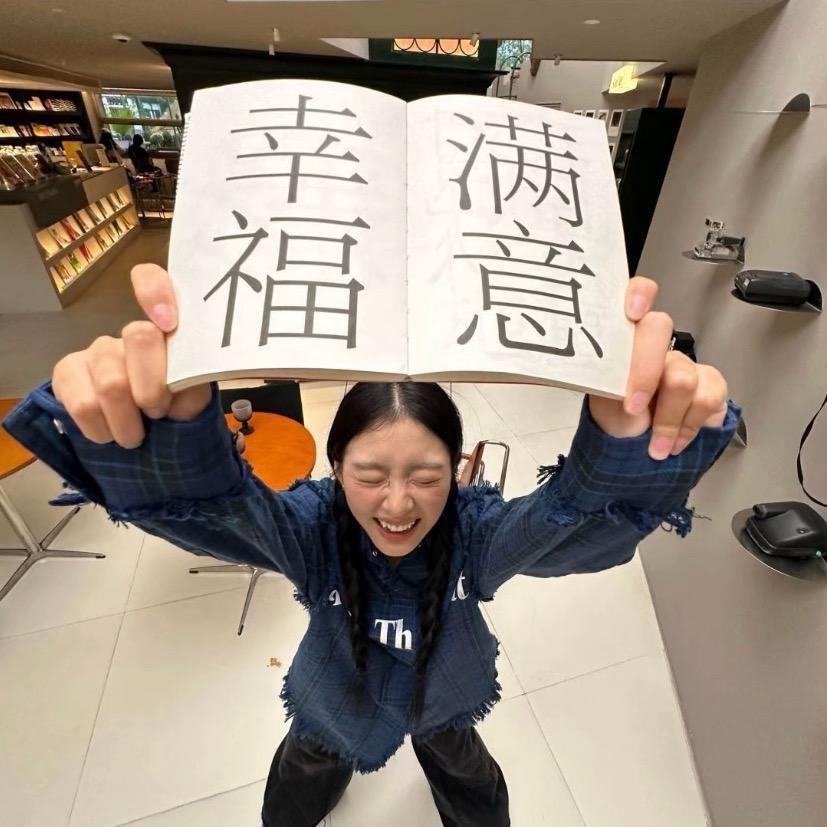 幸
福
满
意
Th